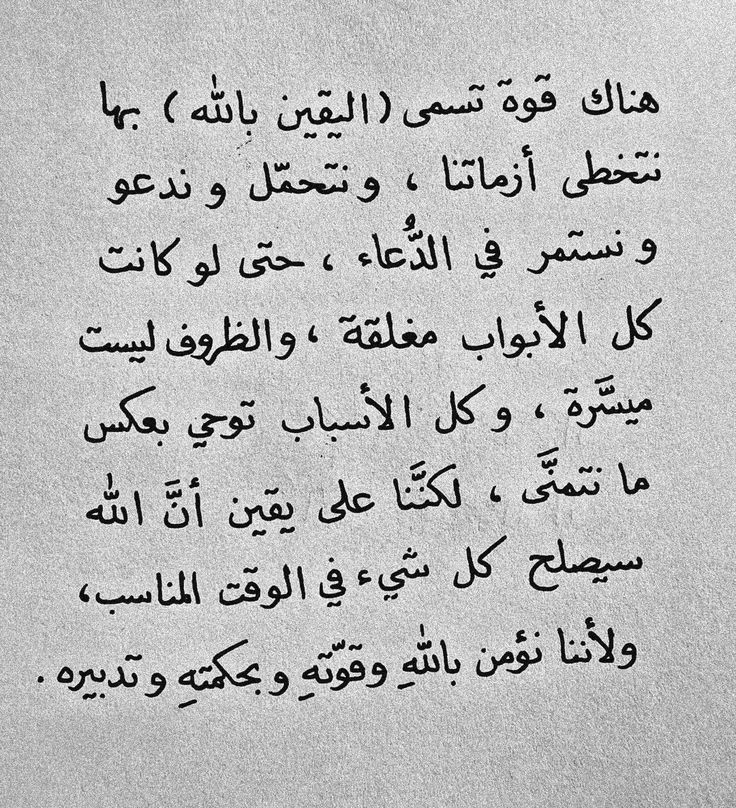 هناك قوة تسمى (اليقين بالله) بها
نتخطى أزماتنا ، و نتحمّل و ندعو
و نستمر في الدُّعاء ، حتى لو كانت
كل الأبواب مغلقة ، والظروف ليست
ميسَّرة ، و كل الأسباب توحي بعكس
ما نتمنَّى ، لكنَّنا على يقين أنَّ الله
سيصلح كل شيء في الوقت المناسب،
ولأننا نؤمن باللهِ وقوّتهِ و بحكمتهِ و تدبيره .